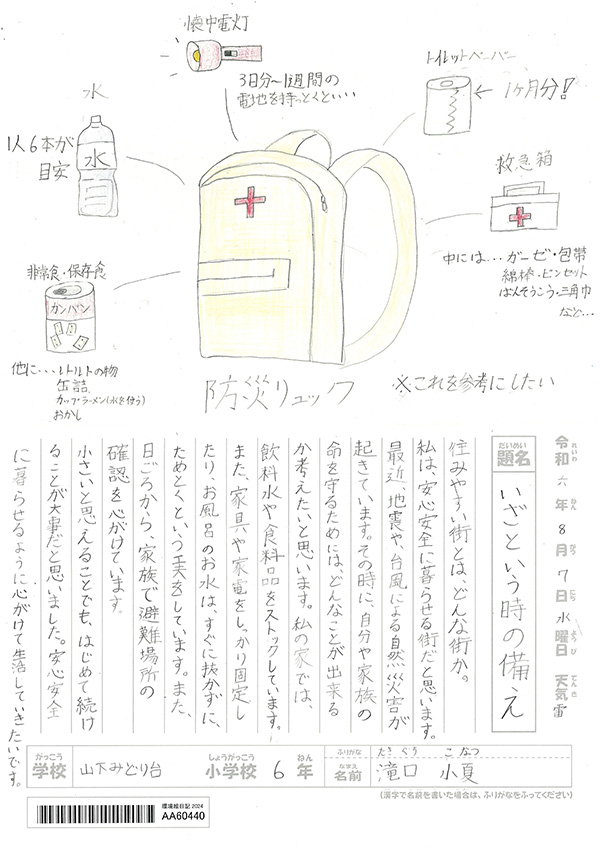 懐中電灯
3日分〜1週間の
電地を持っとくといい…
トイレットペーパー
←1ヶ月分!
水
1人6本が
目安
水
救急箱
中には…ガーゼ・包帯
綿棒・ピンセット
ばんそうこう・三角巾
など…
非常食・保存食
カンパン
他に…レトルトの物
缶詰
カップ・ラーメン(水を使う)
おかし
防災リュック
※これを参考にしたい
令和六年8月7日水曜日 天気雷
れいわ ねん がつ にち ようび てんき
だいめい
題名
いざという時の備え
住みやすい街とは、どんな街か。
私は、安心安全に暮らせる街だと思います。
最近、地震や、台風による自然災害が
起きています。その時に、自分や家族の
命を守るためには、どんなことが出来る
か考えたいと思います。私の家では、
飲料水や食料品をストックしています。
また、家具や家電をしっかり固定し
たり、お風呂のお水は、すぐに抜かずに、
ためとくという工夫をしています。また、
日ごろから、家族で避難場所の
確認を心がけています。
小さいと思えることでも、はじめて続け
ることが大事だと思いました。安心安全
に暮らせるように心がけて生活していきたいです。
がっこう
学校
山下みどり台
しょうがっこう
小学校
6
ねん
年
ふりがな
たきぐち こなつ
なまえ
名前
滝口 小夏
(漢字で名前を書いた場合は、ふりがなをふってください)
環境絵日記 2024
AA60440